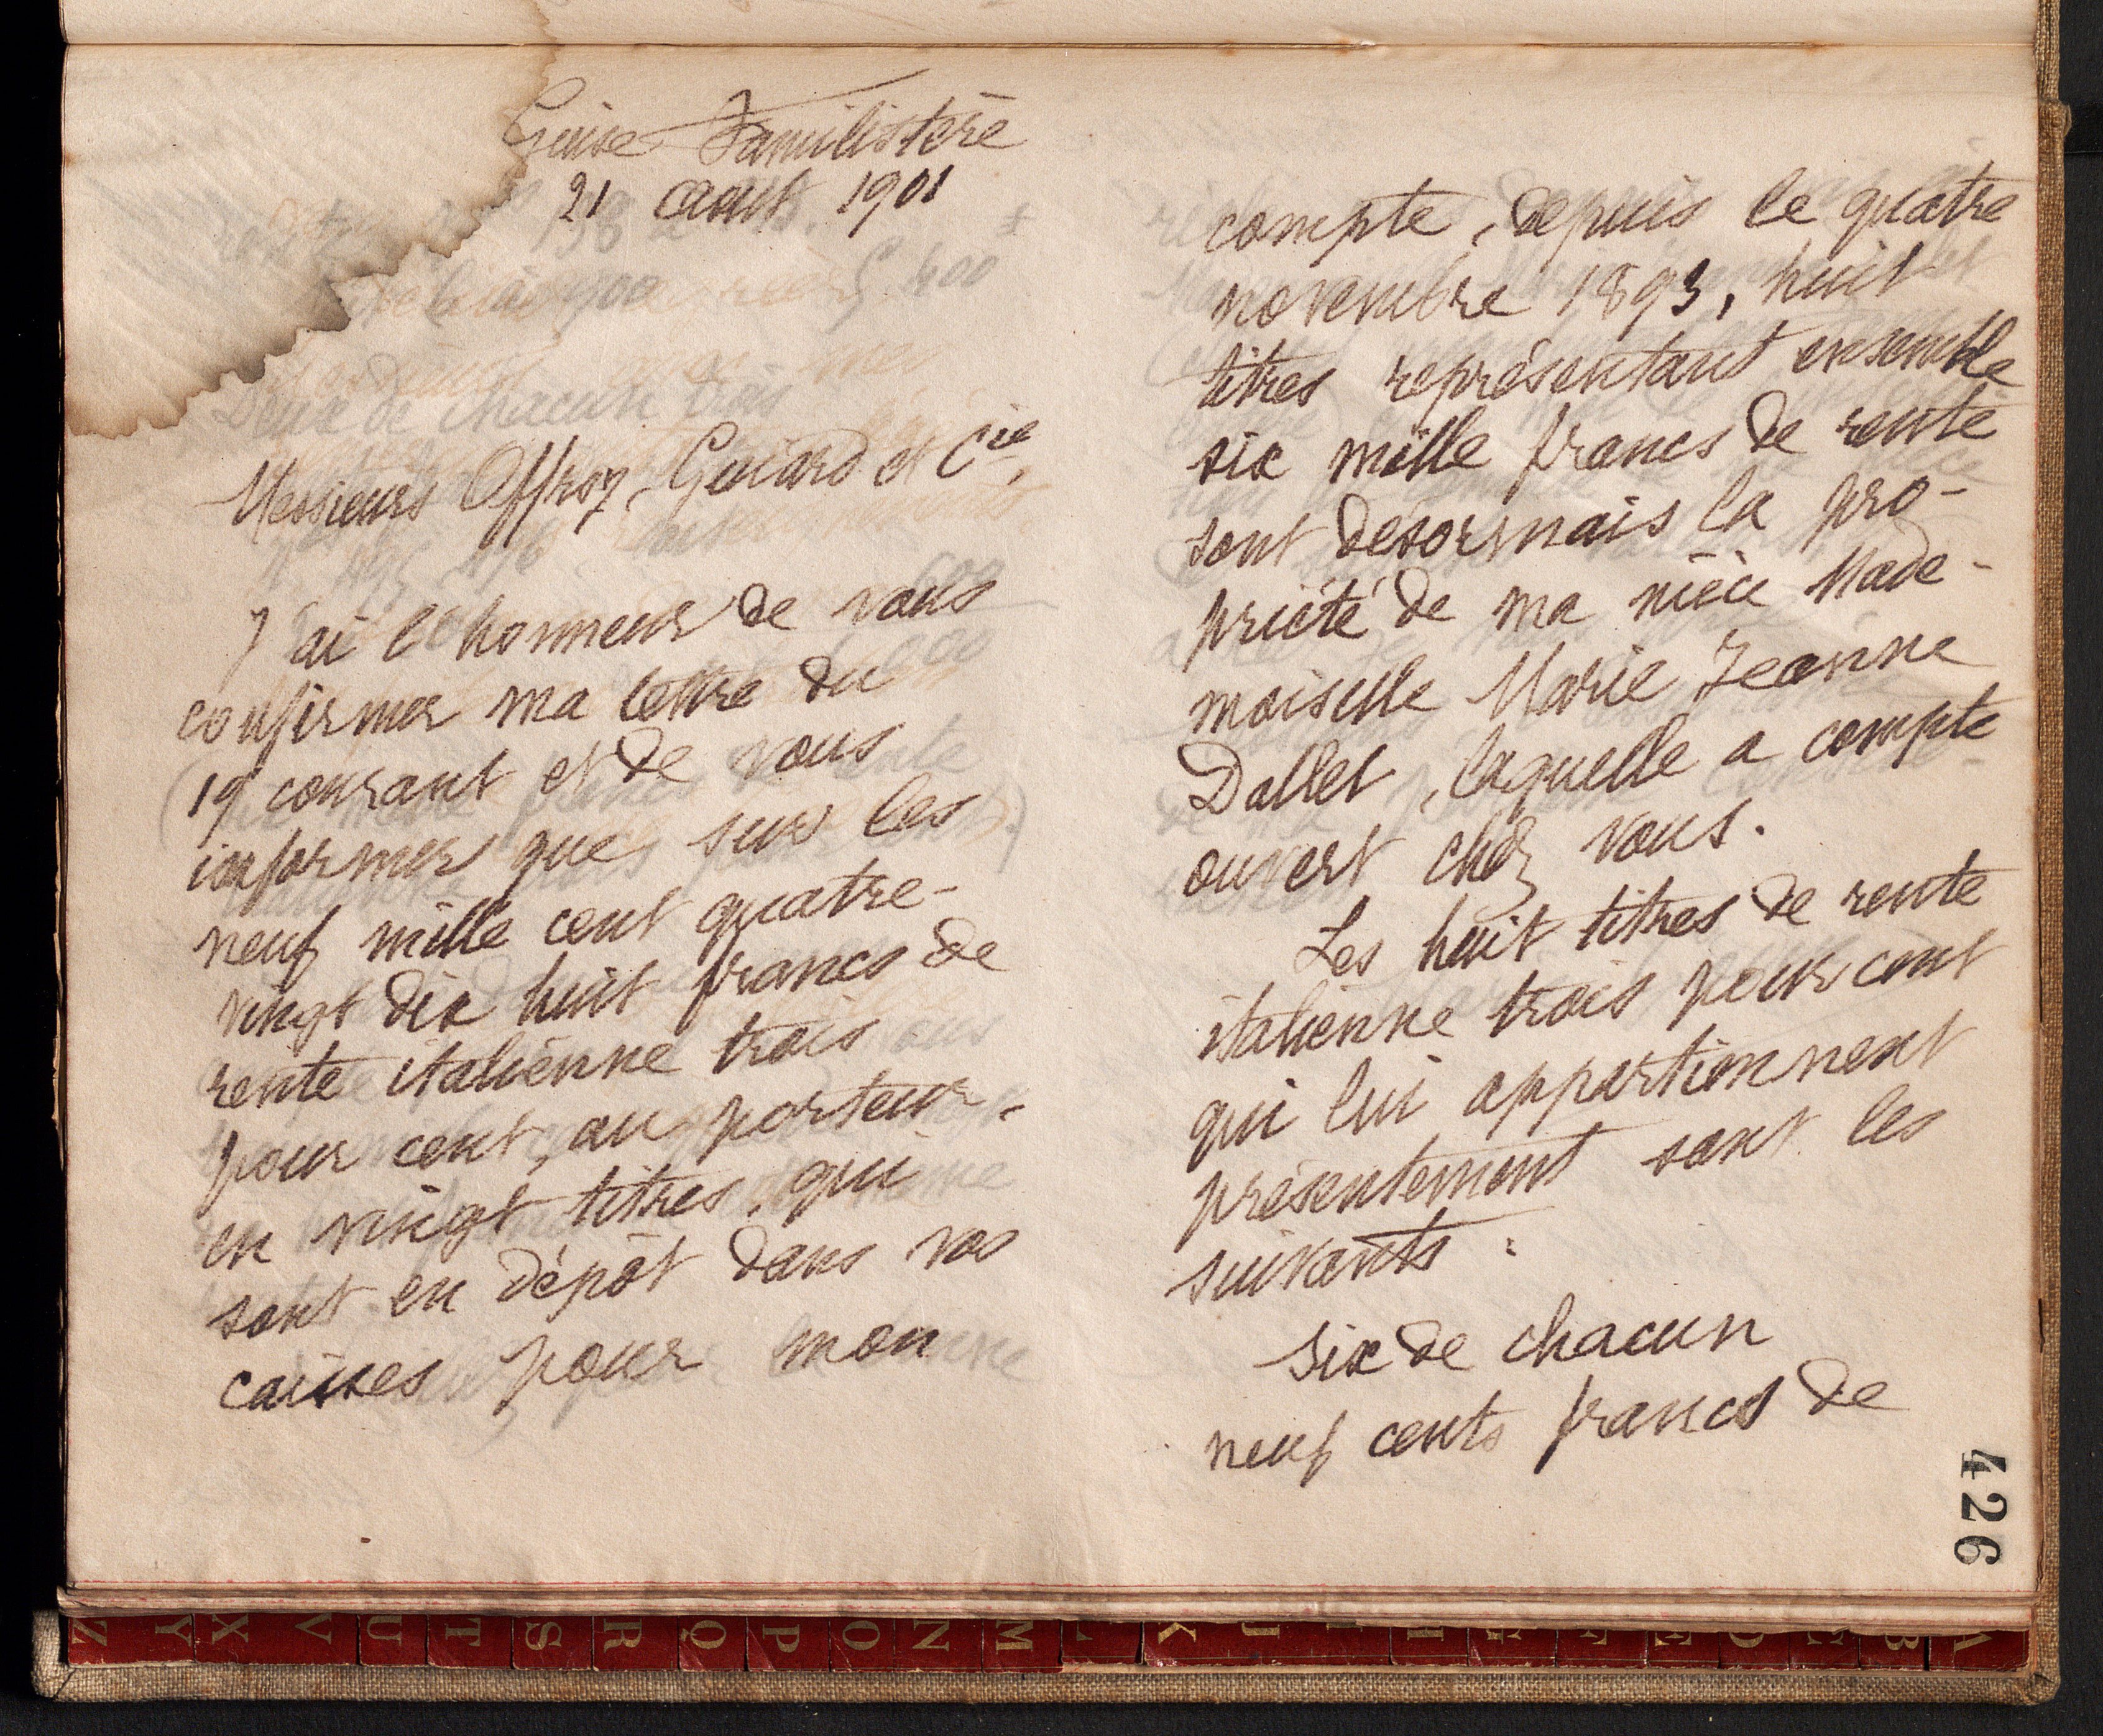 Guise Familistère
21 août 1901
Messieurs Offroy, Guiard et Cie,
J'ai l'honneur de vous
confirmer ma lettre du
19 courant et de vous
informer que sur les
neuf mille cent quatre-
vingt dix huit francs de
rente italienne trois
pour cent, au porteur,
en vingt titres, qui
sont en dépôt dans vos
caisses pour mon
compte, depuis le quatre
novembre 1893, huit
titres représentant ensemble
six mille francs de rente
sont désormais la pro-
priété de ma nièce Made-
moiselle Marie Jeanne
Dallet, laquelle a compte
ouvert chez vous.
Les huit titres de rente
italienne trois pour cent
qui lui appartiennent
présentement sont les
suivants :
Six de chacun
neuf cents francs de
426
Z Y X V U T S R Q P O N M L K J I H G F E D C B A